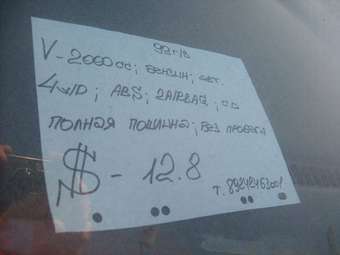 92 г/в
V-2000cc; бензин; авт.
4w/D; ABS; 2AIRBAG; CD
полная пошлина; без пробега
$ - 12.8
т. 89242463001